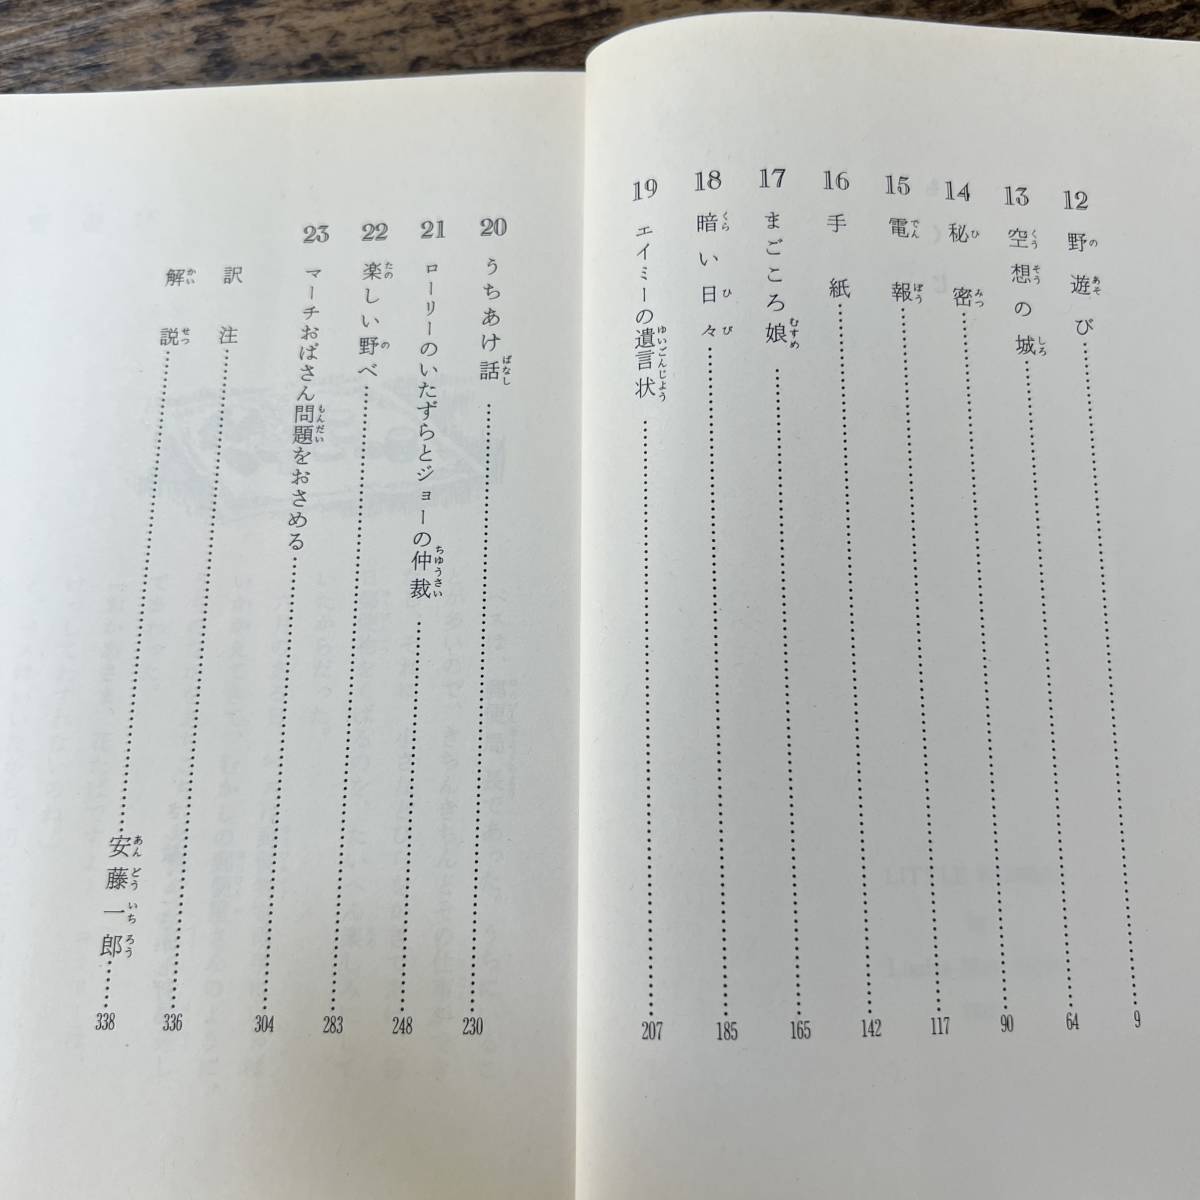 12 野遊び……9
13 空想の城……64
14 秘密……90
15 電報……117
16 手紙……142
17 まごころ娘……165
18 暗い日々……185
19 エイミーの遺言状……207
20 うちあけ話……230
21 ローリーのいたずらとジョーの仲裁……248
22 楽しい野べ……283
23 マーチおばさん問題をおさめる……304
訳注……336
解説……安藤一郎……338